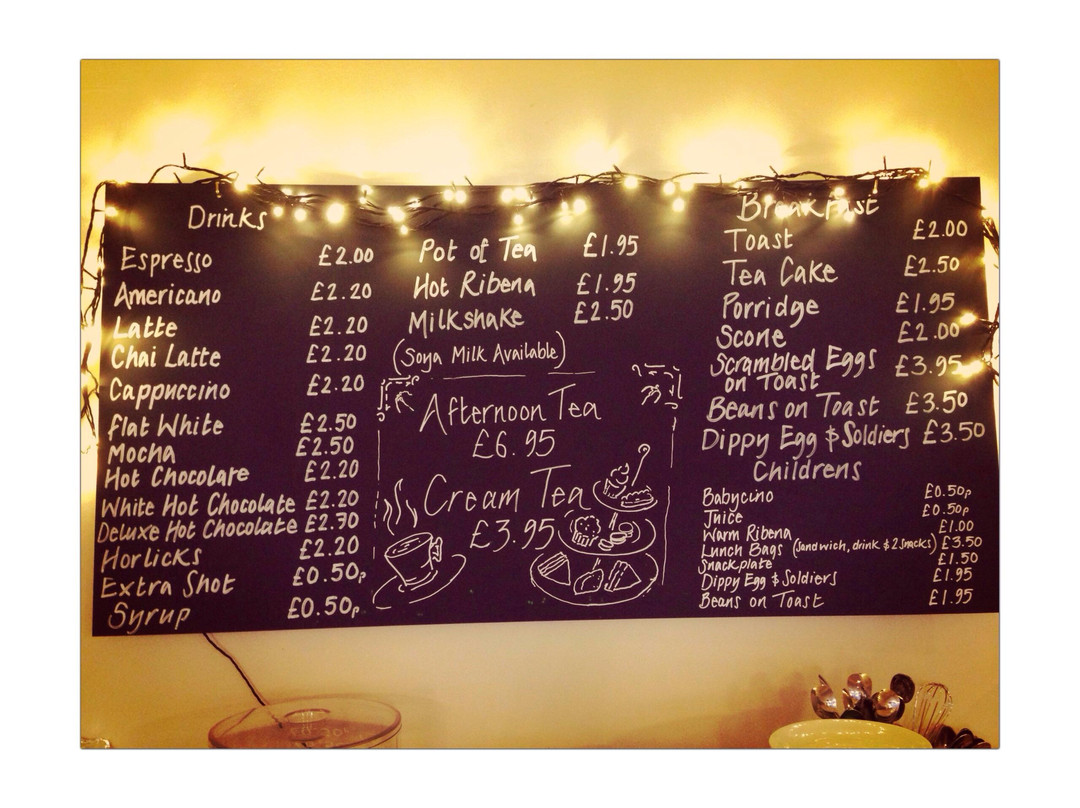 Drinks
Espresso £2.00
Americano £2.20
Latte £2.20
Chai Latte £2.20
Cappuccino £2.20
Flat White £2.50
Mocha £2.50
Hot Chocolate £2.20
White Hot Chocolate £2.20
Deluxe Hot Chocolate £2.70
Horlicks £2.20
Extra Shot £0.50p
Syrup £0.50p
Pot of Tea £1.95
Hot Ribena £1.95
Milkshake £2.50
(Soya Milk Available)
Afternoon Tea
£6.95
Cream Tea
£3.95
Breakfast
Toast £2.00
Tea Cake £2.50
Porridge £1.95
Scone £2.00
Scrambled Eggs
on Toast £3.95
Beans on Toast £3.50
Dippy Egg & Soldiers £3.50
Childrens
Babycino £0.50p
Juice £0.50p
Warm Ribena £1.00
Lunch Bags (sandwich, drink & 2 snacks) £3.50
Snackplate £1.50
Dippy Egg & Soldiers £1.95
Beans on Toast £1.95